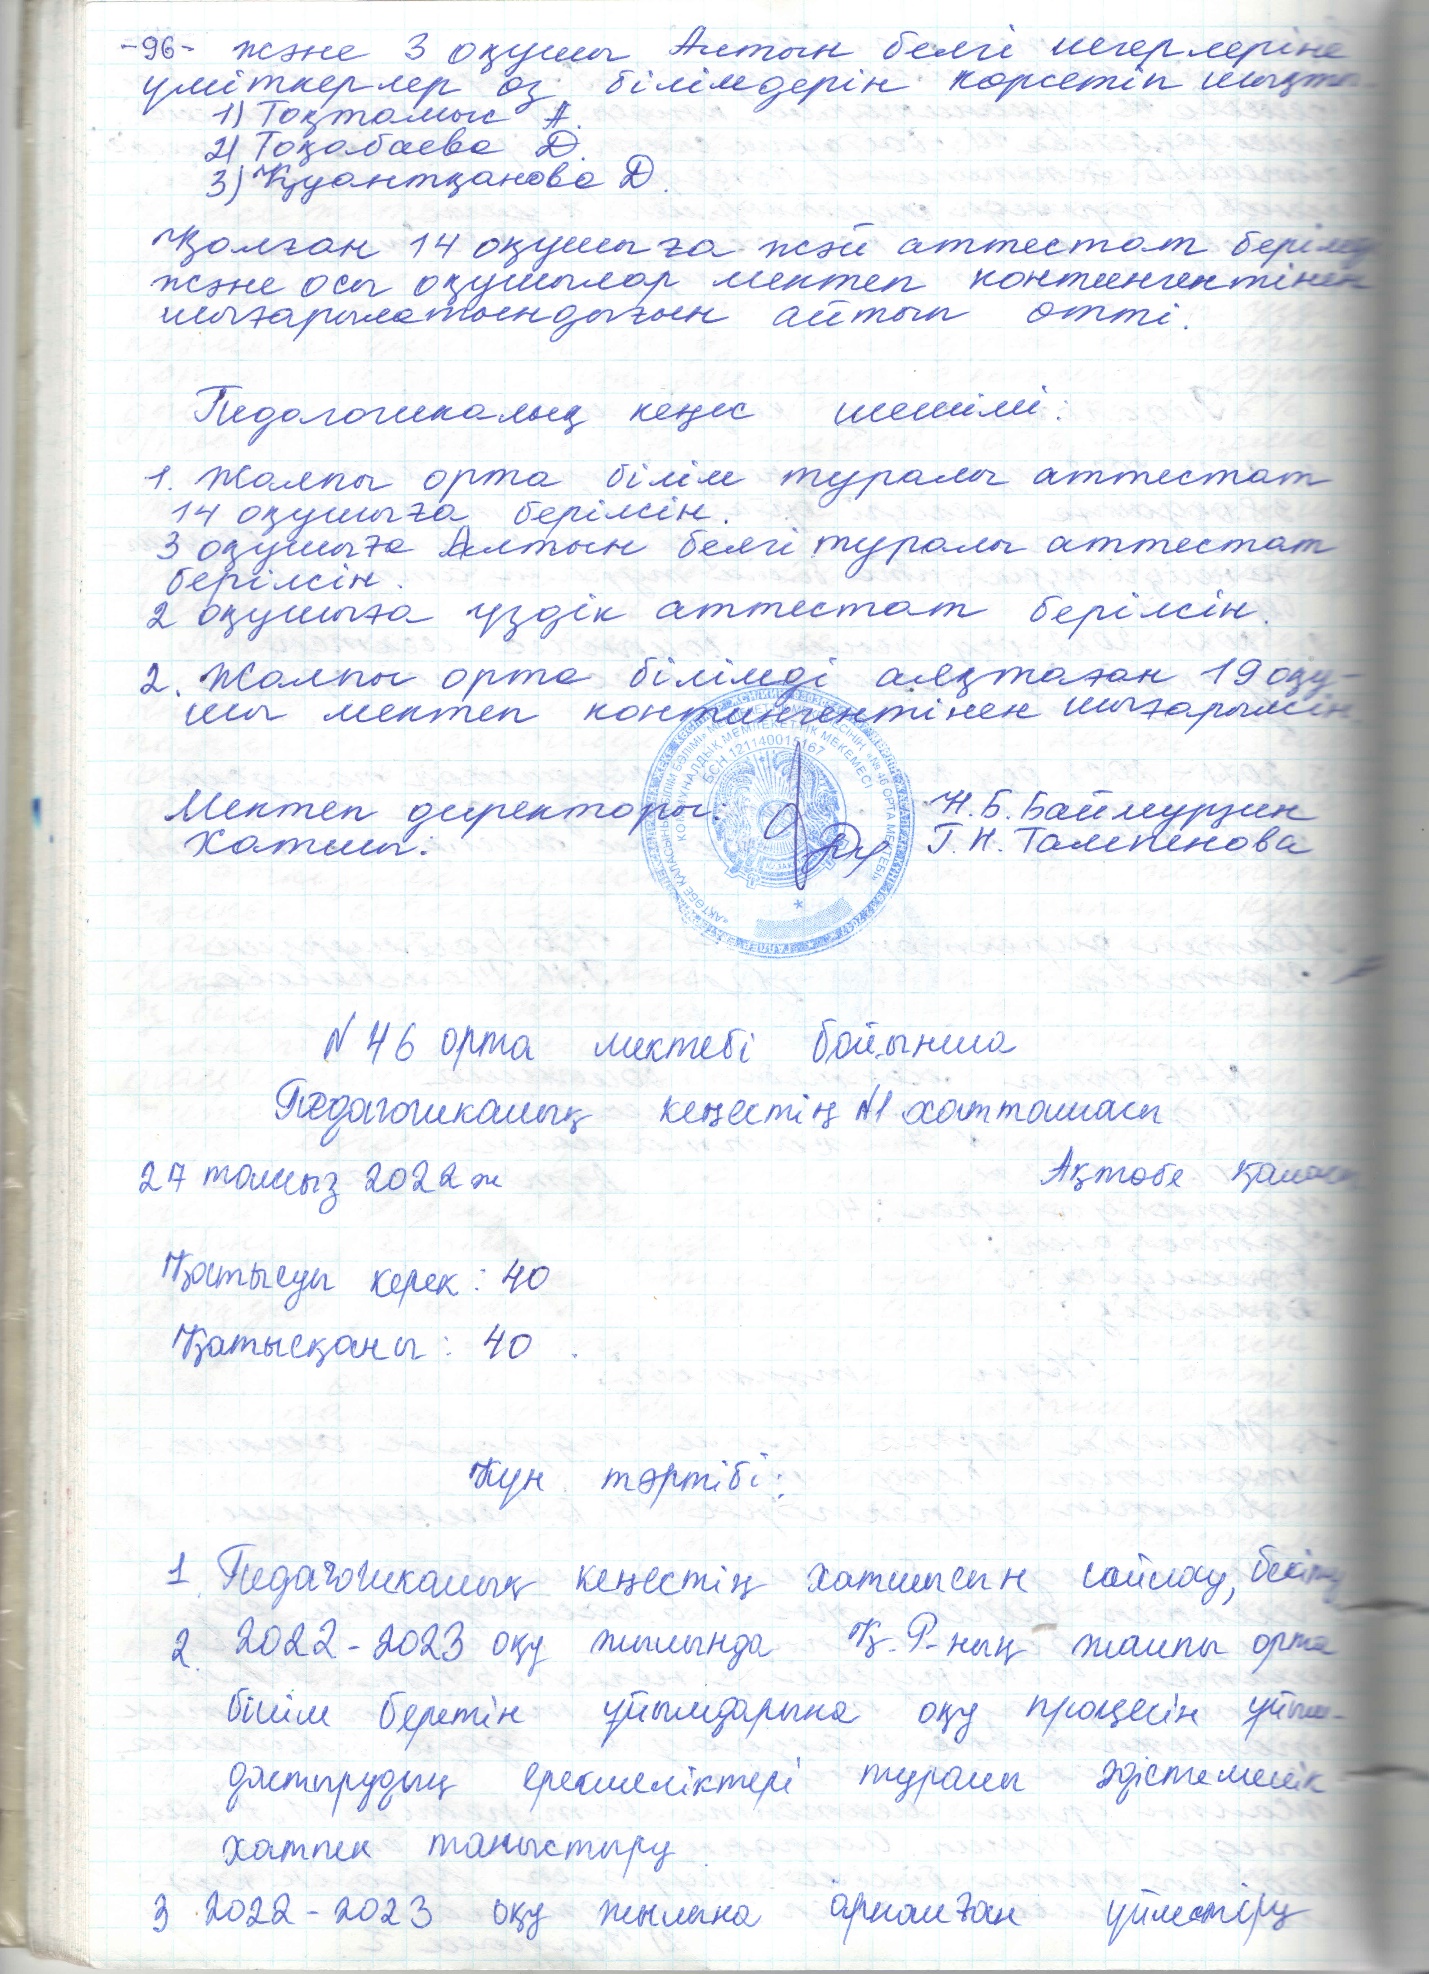 -96- және 3 оқушы Алтын белгі иегерлеріне
үміткерлер өз білімдерін көрсетіп шықты.
1) Тоқтамыс А.
2) Тоқабаева Д.
3) Қуантқанова Д.
Қалған 14 оқушыға жәй аттестат беріледі
және осы оқушылар мектеп контингентінен
шығарылатындығын айтып өтті.
Педагогикалық кеңес шешімі:
1. Жалпы орта білім туралы аттестат
14 оқушыға берілсін.
3 оқушыға Алтын белгі туралы аттестат
берілсін.
2 оқушыға үздік аттестат берілсін.
2. Жалпы орта білімді аяқтаған 19 оқу-
шы мектеп контингентінен шығарылсын.
Мектеп директоры: Н.Б.Баймурзин
Хатшы: Г.Н.Тампенова
КОММУНАЛДЫҚ МЕМЛЕКЕТТІК МЕКЕМЕСІ
БСН 121140015167
N 46 орта мектебі бойынша
Педагогикалық кеңестің N1 хаттамасы
27 тамыз 2022 ж Ақтөбе қаласы
Қатысуы керек: 40
Қатысқаны: 40
Күн тәртібі:
1. Педагогикалық кеңестің хатшысын сайлау, бекіту
2. 2022-2023 оқу жылында Қ.Р-ның жалпы орта
білім беретін ұйымдарына оқу процесін ұйым-
дастырудың ерекшеліктері туралы әдістемелік
хатпен таныстыру
3 2022-2023 оқу жылына арналған үйлестіру